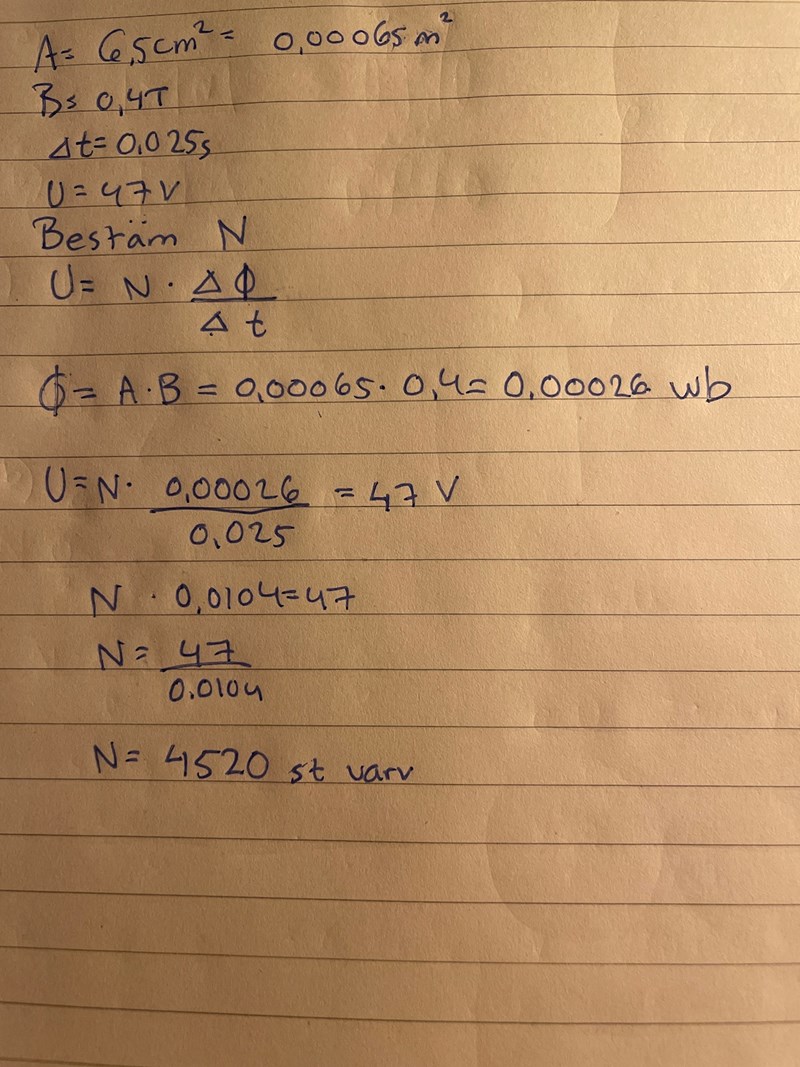 A= 6,5cm² = 0,00065 m²
B= 0,4T
Δt= 0.025s
U= 47V
Bestäm N
U= N · ΔΦ
Δt
Φ= A·B = 0,00065· 0,4= 0,00026 wb
U=N· 0,00026 = 47 V
0,025
N · 0,0104=47
N= 47
0.0104
N= 4520 st varv